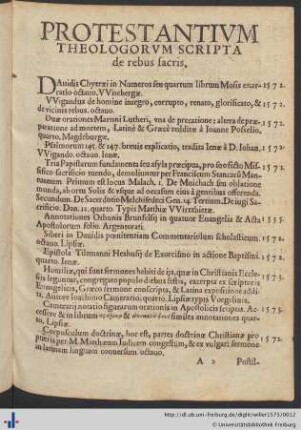 PROTESTANTIVM
THEOLOGORVM SCRIPTA
de rebus sacris.
DAuidis Chytræi in Numeros seu quartum librum Mosis enar-
ratio octauo, VVitebergæ. 1572.
VVigandus de homine integro, corrupto, renato, glorificato, &
de vicinis rebus. octauo. 1572.
Duæ orationes Martini Lutheri, vna de precatione: altera de præ-
paratione ad mortem, Latinè & Græcè redditæ à Ioanne Posselio,
quarto, Magdeburgæ. 1572.
Psalmorum 145. & 147. breuis explicatio, tradita Ienæ à D. Iohan.
VVigando. octauo. Ienæ. 1572.
Tria Papistarum fundamenta seu asyla præcipua, pro suo ficto Mis-
sifico sacrificio tuendo, demoliuntur per Franciscum Stancarū Man-
tuanum. Primum est locus Malach. 1. De Meichach seu oblatione
munda, ab ortu Solis & vsque ad occasum eius à gentibus offerenda.
Secundum. De Sacerdotio Melchisedeci Gen. 14. Tertium. De iugi Sa-
crificio. Dan. 12. quarto Typis Matthiæ VVirzbiētæ.
Annotationes Othonis Brunfelsij in quatuor Euangelia & Acta
Apostolorum folio. Argentorati. 1535.
Siberi in Dauidis pœnitentiam Commentariolum scholasticum.
octauo. Lipsiæ. 1572.
Epistola Tilmanni Heshusij de Exorcismo in actione Baptismi.
quarto. Ienæ. 1572.
Homiliæ, qui sunt sermones habiti de ijs, quæ in Christianis Eccle-
sijs leguntur, congregato populo diebus festis, excerpta ex scriptoris
Euangelicis, Græco sermone conscriptæ, & Latina expositione additi-
tæ. Autore Ioachimo Camerario, quarto. Lipsiæ typis Vœgelinis. 1573.
Cameraij notatio figurarum orationis in Apostolicis scriptis. Ac-
cessere & in librum
similes annotationes quar-
to, Lipsiæ. 1572.
Corpusculum doctrinæ, hoc est, partes doctrinæ Christianæ pro
pueris per M. Matthæum Iudicem congestum, & ex vulgari sermone
in latinam linguam conuersum. octauo. 1572.
A 2 Postil-
http://dl.ub.uni-freiburg.de/diglit/willer1573/0012
© Universitätsbibliothek Freiburg